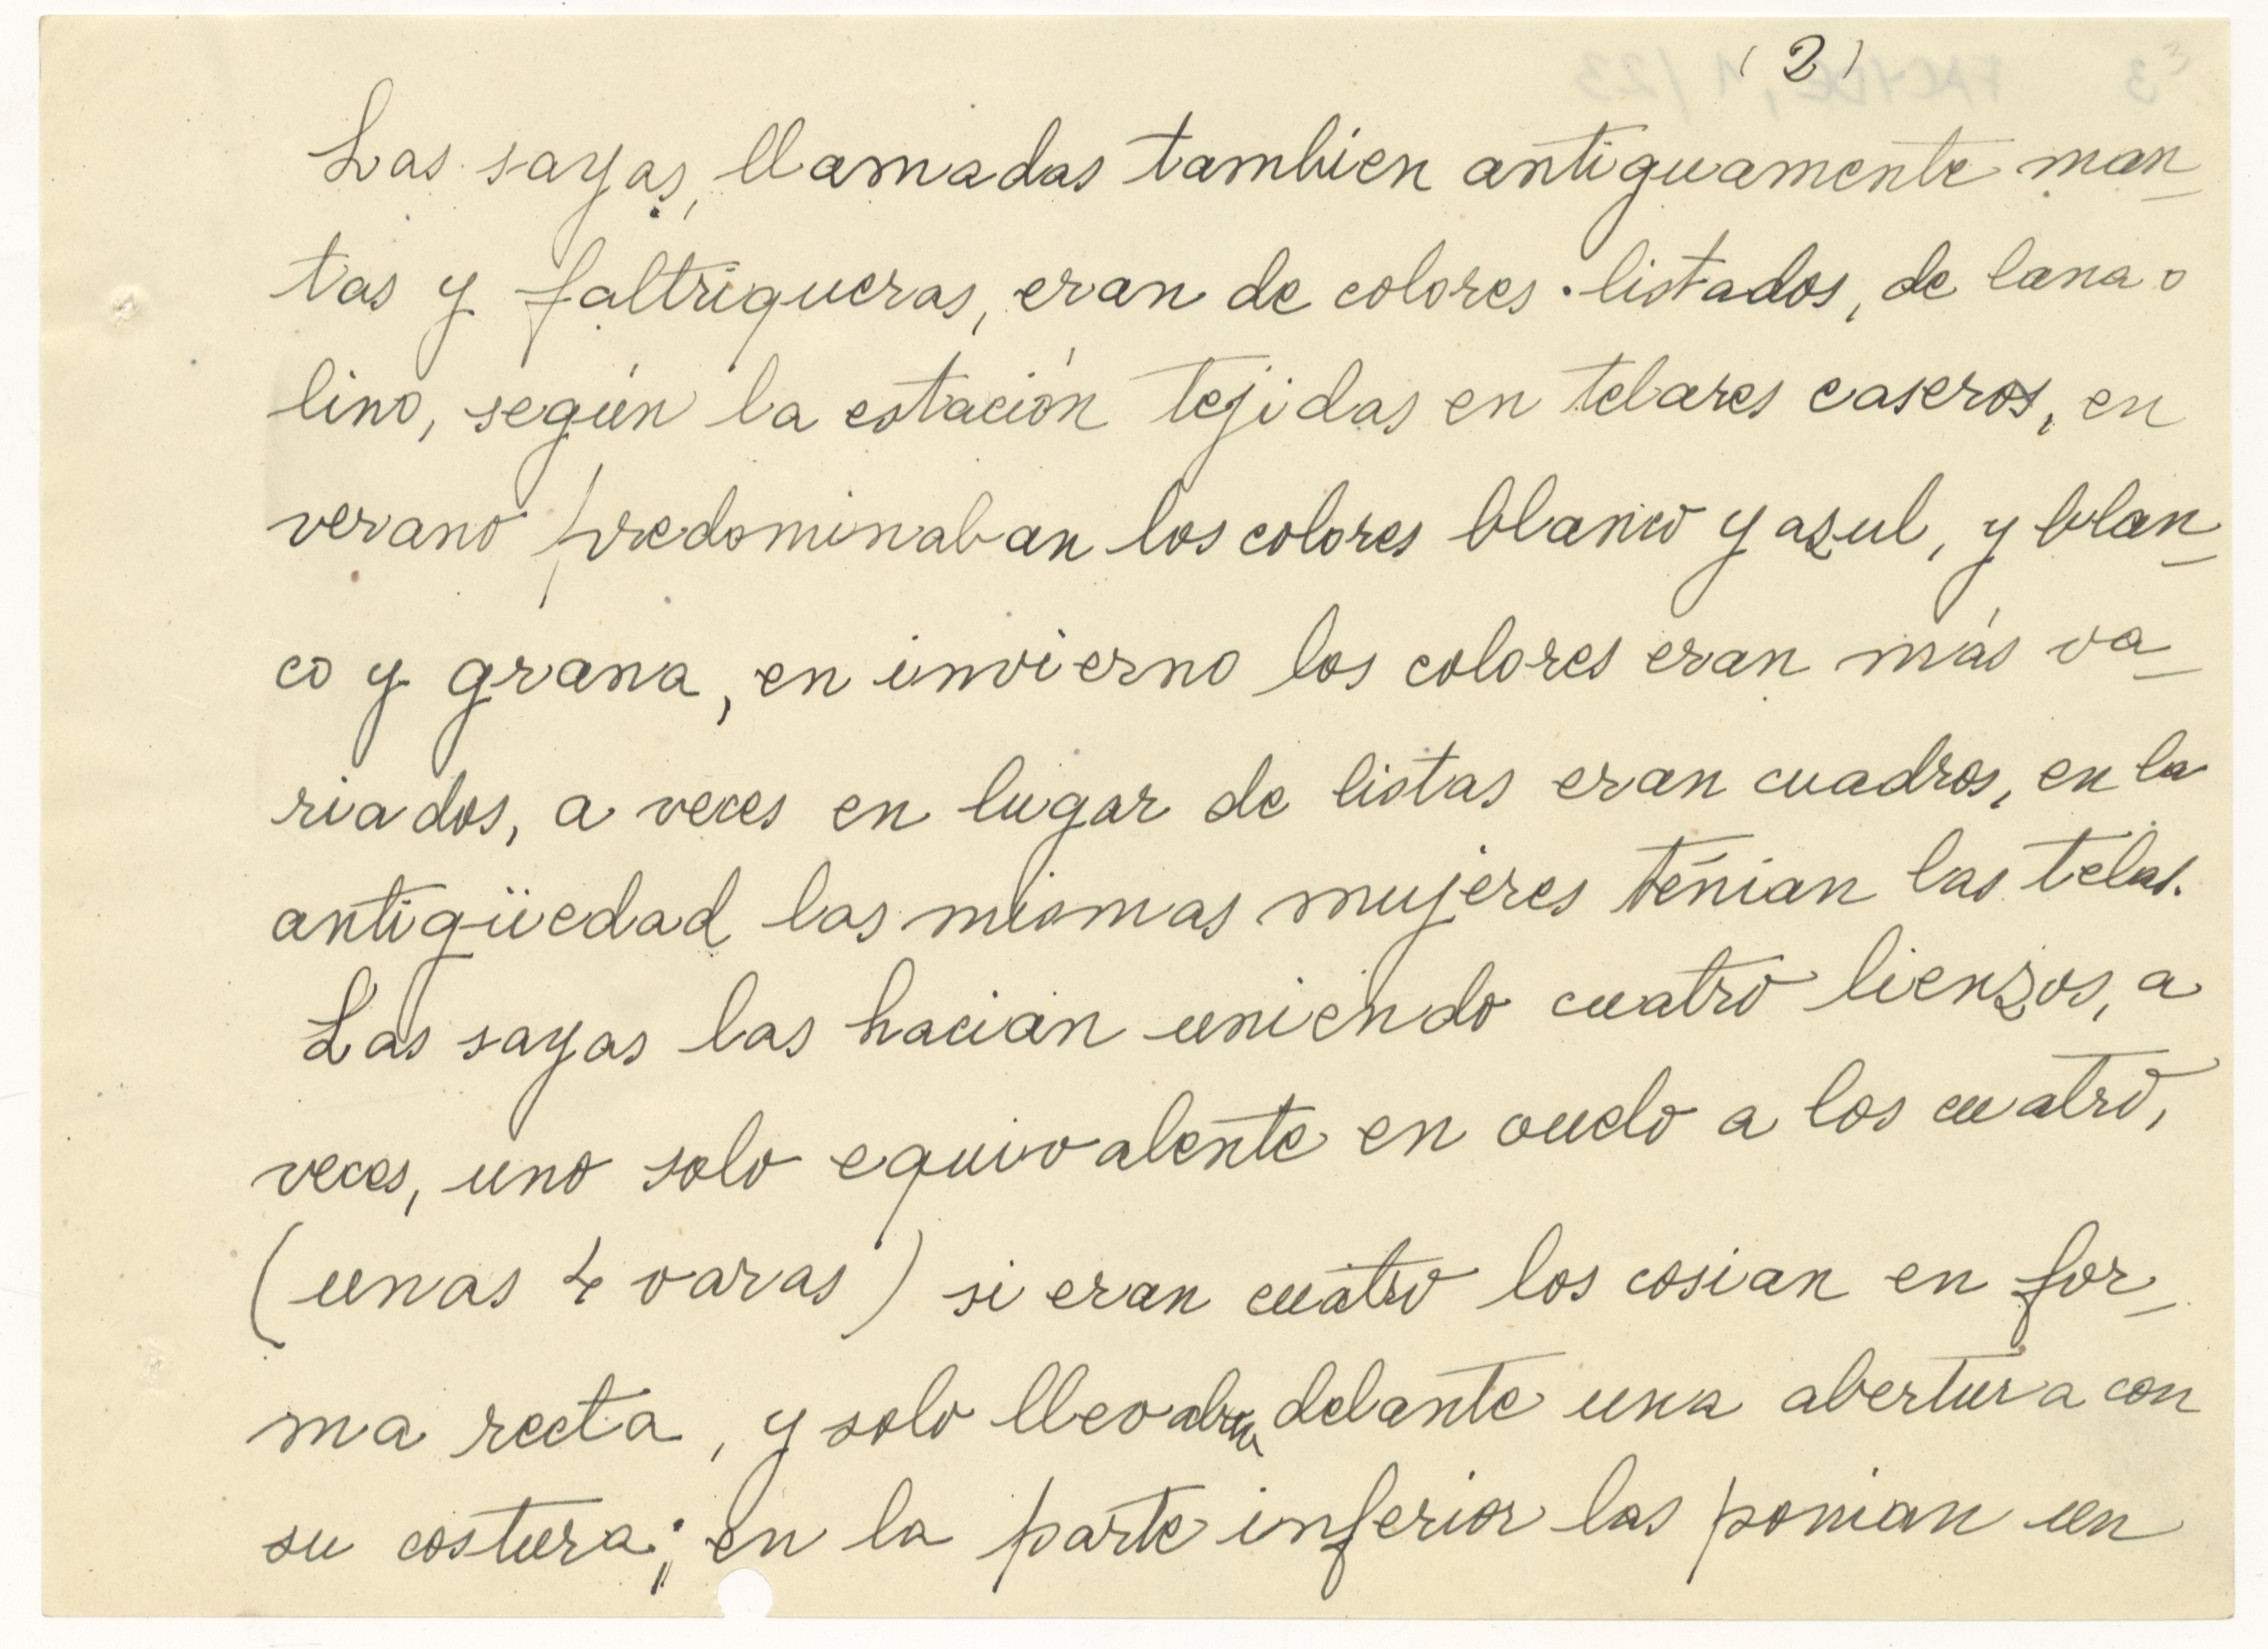 (2)
Las sayas, llamadas tambien antiguamente man-
tas y faltriqueras, eran de colores listados, de lana o
lino, según la estación tejidas en telares caseros, en
verano predominaban los colores blanco y azul, y blan-
co y grana, en invierno los colores eran más va-
riados, a veces en lugar de listas eran cuadros, en la
antigüedad las mismas mujeres teñian las telas.
Las sayas las hacian uniendo cuatro lienzos, a
veces, uno solo equivalente en vuelo a los cuatro,
(unas 4 varas) si eran cuatro los cosian en for-
ma recta, y solo llevaban delante una abertura con
su costura; en la parte inferior las ponian un